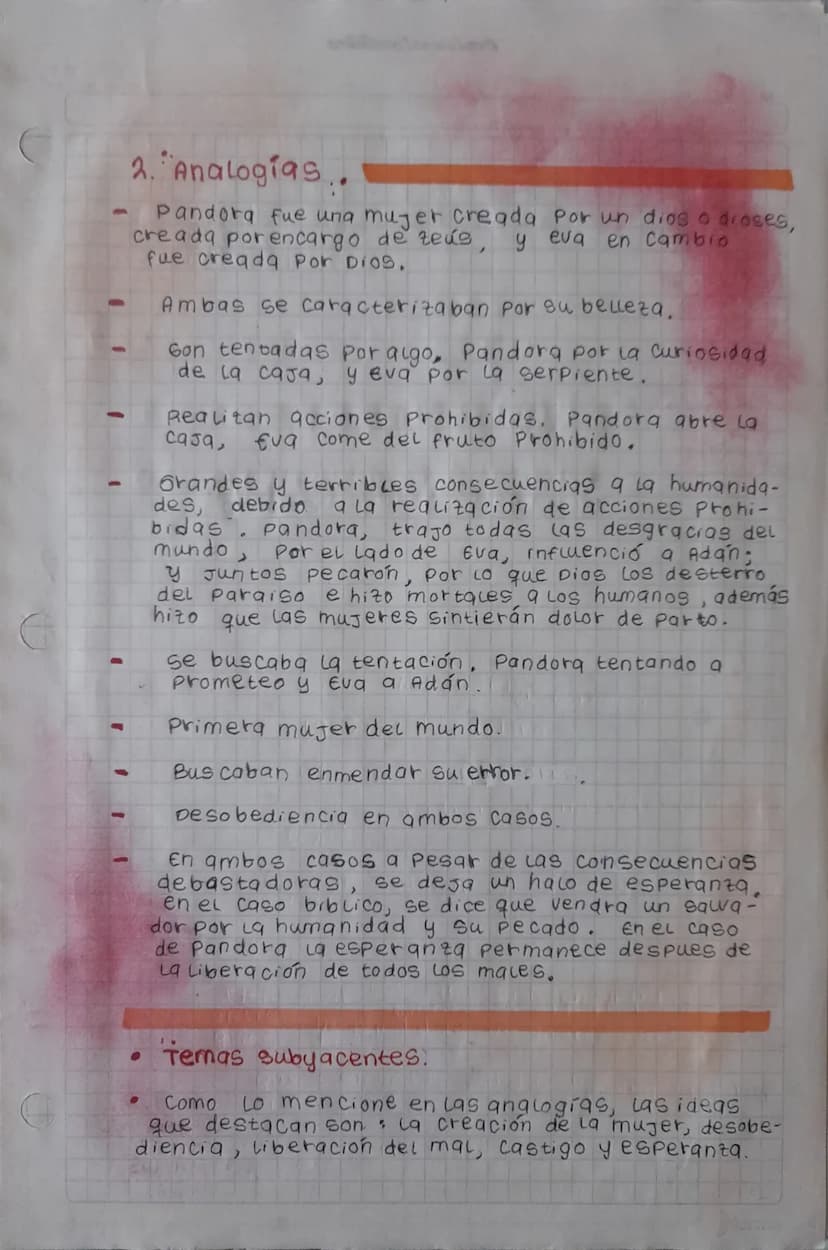 2. Analogías
- Pandora fue una mujer creada por un dios o dioses,
creada por encargo de zeús, y eva en cambio
fue creada por Dios.
- Ambas se caracterizaban por su belleza.
- Son tentadas por algo, Pandora por la curiosidad
de la caja, y eva por la serpiente.
- Realizan acciones prohibidas. Pandora abre la
caja, Eva come del fruto prohibido.
- Grandes y terribles consecuencias a la humanida-
des, debido a la realización de acciones prohi-
bidas. Pandora, trajo todas las desgracias del
mundo, por el lado de Eva, influenció a Adán;
y juntos pecarón, por lo que Dios los desterro
del paraiso e hizo mortales a los humanos, además
hizo que las mujeres sintierán dolor de parto.
- Se buscaba la tentación. Pandora tentando a
Prometeo y Eva a Adán.
- Primera mujer del mundo.
- Buscaban enmendar su error.
- Desobediencia en ambos casos.
- En ambos casos a pesar de las consecuencias
debastadoras, se deja un halo de esperanza.
en el caso bíblico, se dice que vendra un salva-
dor por la humanidad y su pecado. En el caso
de Pandora la esperanza permanece despues de
la liberación de todos los males.
• Temas subyacentes:
• Como lo mencione en las analogías, las ideas
que destacan son: la creación de la mujer, desobe-
diencia, liberación del mal, castigo y esperanza.